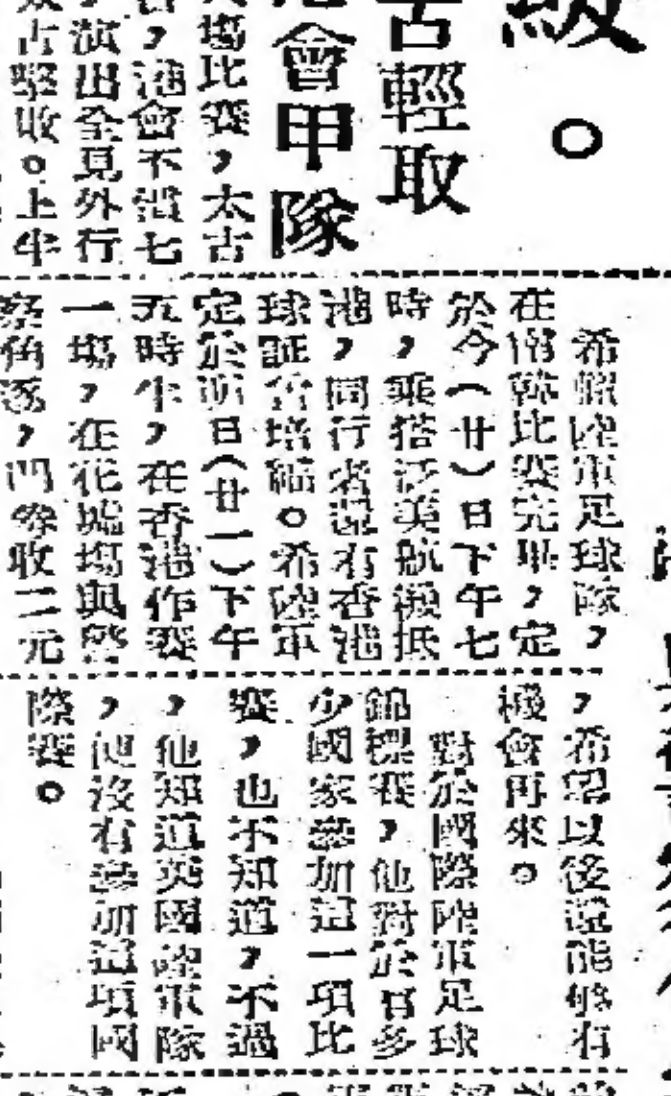 級。
古輕取
會甲隊
場比賽，太古
，港會不敵七
，演出全見外行
古擊敗。上半
希臘陸軍足球隊，
在南韓比賽完畢，定
於今（廿）日下午七
時，乘搭泛美航機抵
港，同行者還有香港
球証曾培福。希陸軍
定於明日（廿一）下午
五時半，在香港作賽
一塲，在花墟塲與警
察角逐，門券收二元
，希望以後還能夠有
機會再來。
對於國際陸軍足球
錦標賽，他對於有多
少國家參加這一項比
賽，也不知道，不過
，他知道英國陸軍隊
，他沒有參加這項國
際賽。